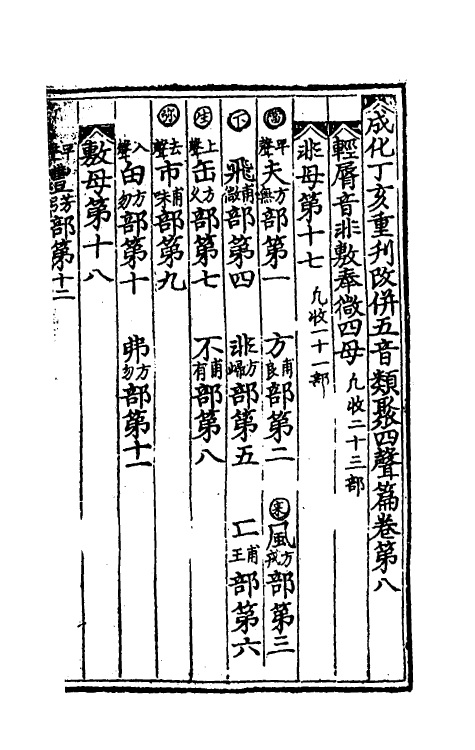 成化丁亥重刋改併五音類聚四聲篇卷第八
輕脣音非敷奉微四母 凢收二十三部
非母第十七 凢收一十一部
平聲夫方無部第一 方甫良部第二 風方戎部第三
飛甫微部第四 非方歸部第五 匚甫王部第六
上聲缶方久部第七 不甫有部第八
去聲巿甫味部第九
入聲甶方勿部第十 弗方勿部第十一
敷母第十八
平聲豐芳部第十二